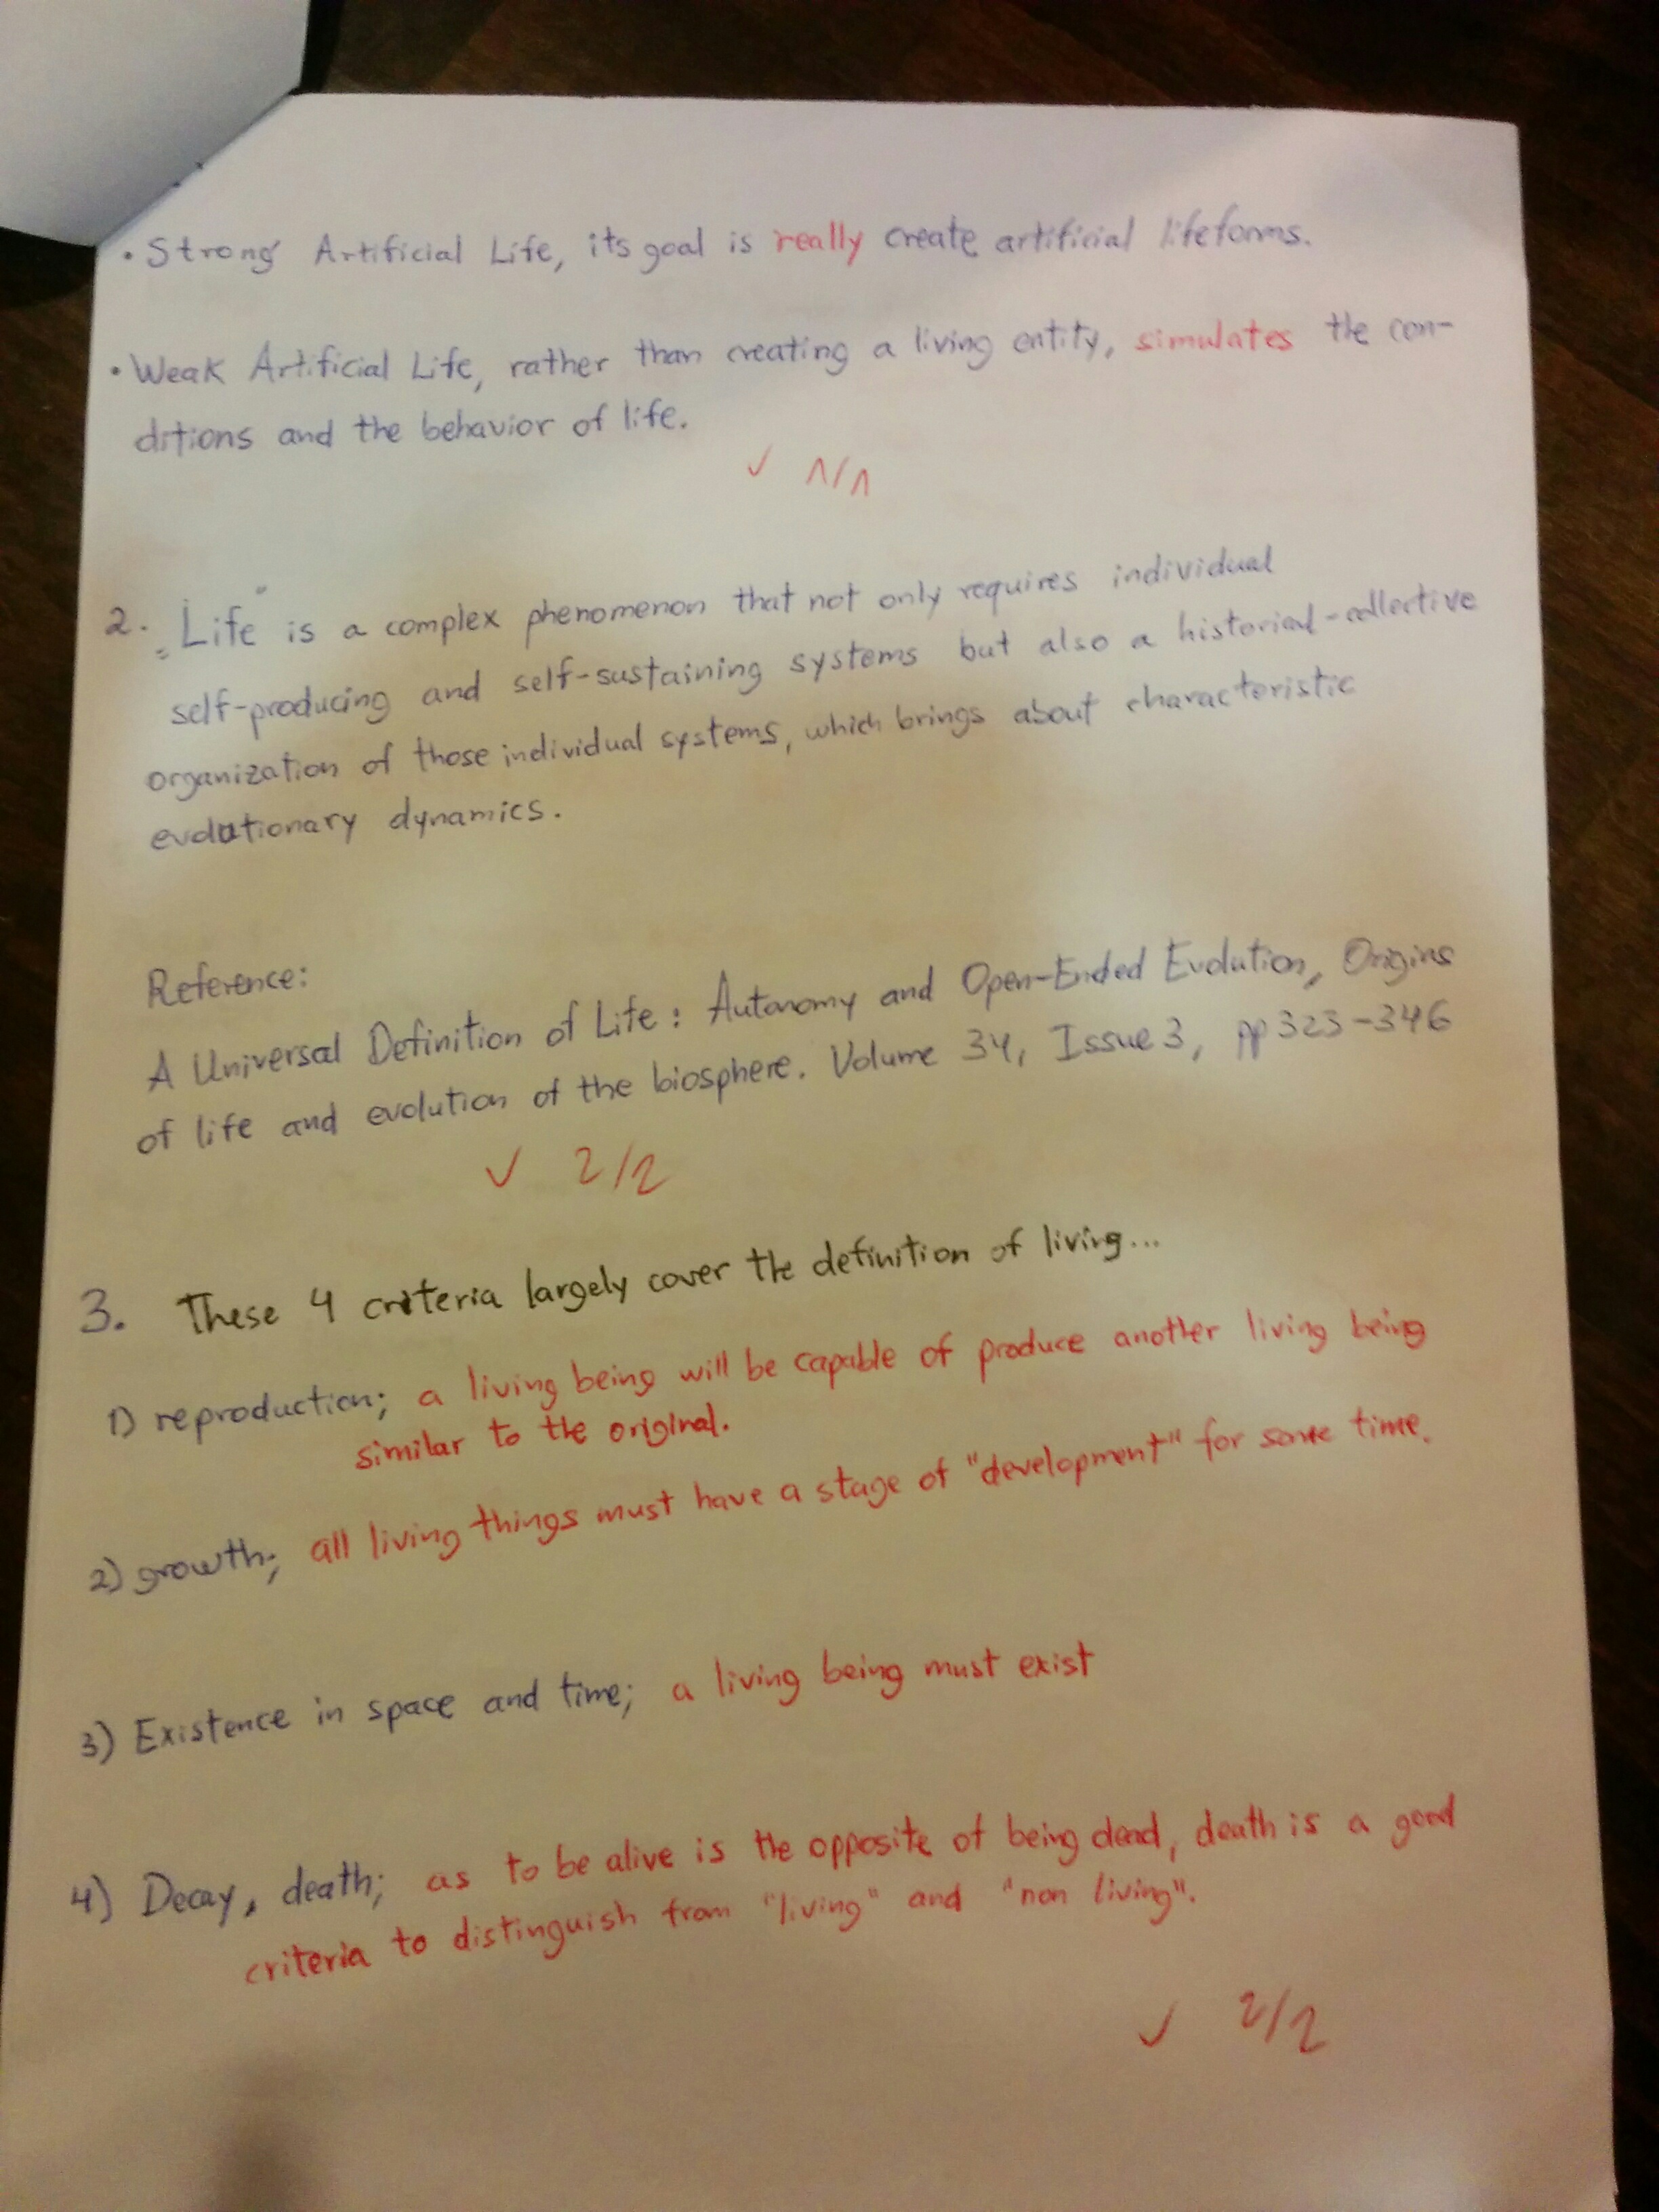 • Strong Artificial Life, its goal is really create artificial lifeforms.
• Weak Artificial Life, rather than creating a living entity, simulates the con-
ditions and the behavior of life.
✓ 1/1
2. "Life" is a complex phenomenon that not only requires individual
self-producing and self-sustaining systems but also a historical-collective
organization of those individual systems, which brings about characteristic
evolutionary dynamics.
Reference:
A Universal Definition of Life: Autonomy and Open-Ended Evolution, Origins
of life and evolution of the biosphere. Volume 34, Issue 3, pp 323-346
✓ 2/2
3. These 4 criteria largely cover the definition of living...
1) reproduction; a living being will be capable of produce another living being
similar to the original.
2) growth; all living things must have a stage of "development" for some time.
3) Existence in space and time; a living being must exist
4) Decay, death; as to be alive is the opposite of being dead, death is a good
criteria to distinguish from "living" and "non living".
✓ 2/2